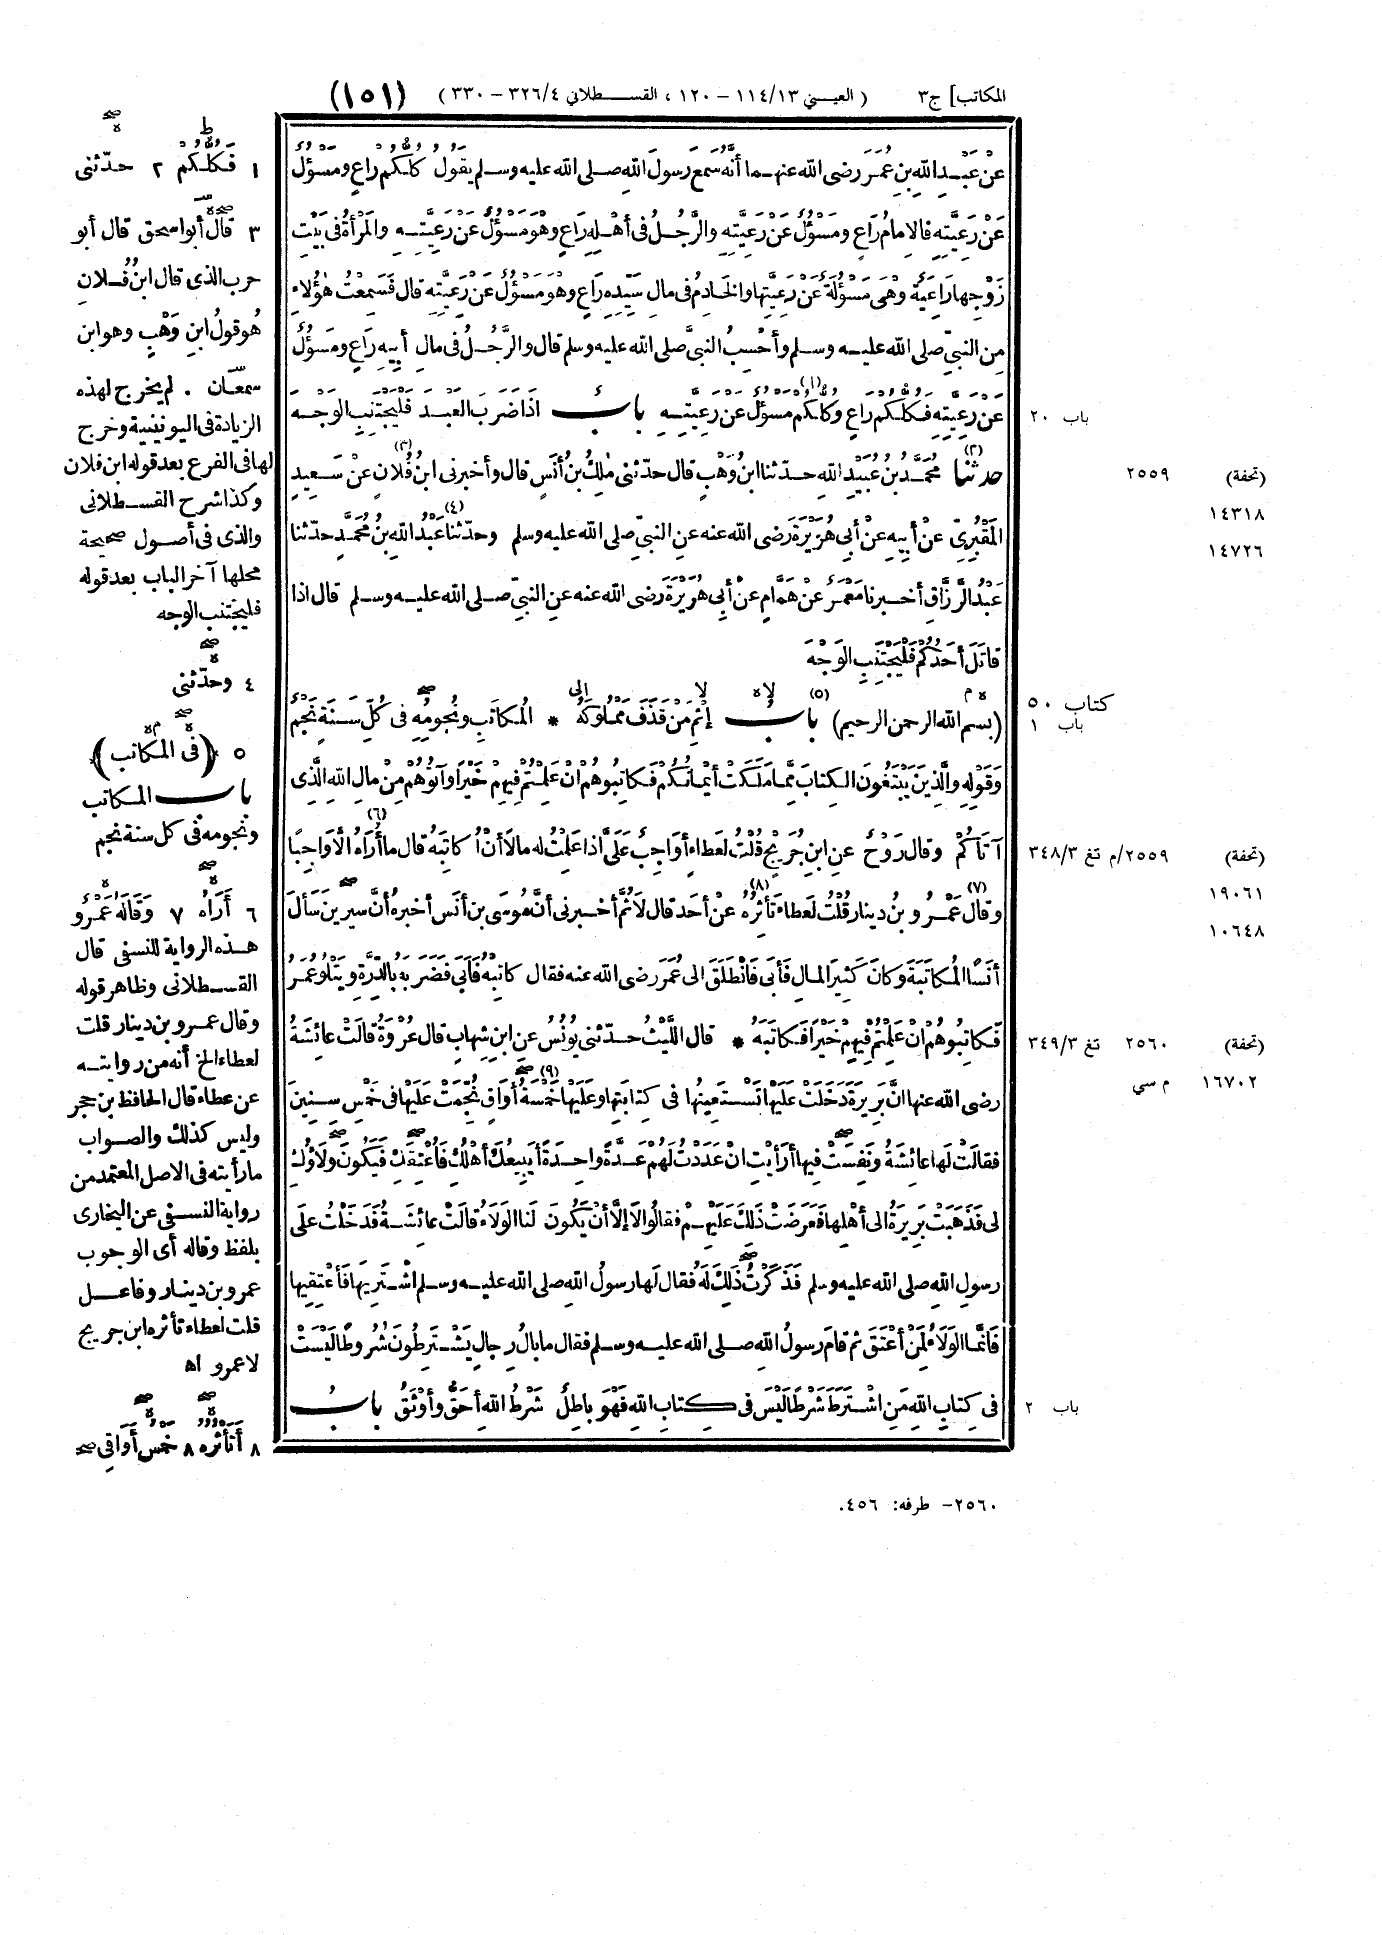 المكاتب] ج٣ ( العيني ١١٤/١٣ - ١٢٠ ، القسطلاني ٣٢٦/٤ - ٣٣٠ ) (١٥١)
عَنْ عَبْدِ اللهِ بنِ عُمَرَ رضى الله عنهما أنَّهُ سَمِعَ رسولَ اللهِ صلى الله عليه وسلم يقولُ كُلُّكُمْ رَاعٍ ومَسْؤُلٌ
عَنْ رَعِيَّتِهِ فالاِمامُ رَاعٍ ومَسْؤُلٌ عَنْ رَعِيَّتِهِ والرَّجُلُ فى أهْلِهِ رَاعٍ وهْوَ مَسْؤُلٌ عَنْ رَعِيَّتِهِ والمَرْأةُ فى بَيْتِ
زَوْجِها رَاعِيَةٌ وهْىَ مَسْؤُلَةٌ عَنْ رَعِيَّتِها والخَادِمُ فى مالِ سَيِّدِهِ رَاعٍ وهْوَ مَسْؤُلٌ عَنْ رَعِيَّتِهِ قال فَسَمِعْتُ هٰؤُلاءِ
مِنَ النبىِّ صلى الله عليه وسلم وأحْسِبُ النبىَّ صلى الله عليه وسلم قال والرَّجُلُ فى مالِ أبِيهِ رَاعٍ ومَسْؤُلٌ
عَنْ رَعِيَّتِهِ فَكُلُّكُمْ رَاعٍ وكُلُّكُمْ (١) مَسْؤُلٌ عَنْ رَعِيَّتِهِ بابٌ اذَا ضَرَبَ العَبْدَ فَلْيَجْتَنِبِ الوَجْهَ
باب ٢٠
حدثنا (٢) مُحَمَّدُ بنُ عُبَيْدِ اللهِ حدّثنا ابنُ وَهْبٍ قال حدّثنى مٰلِكُ بنُ أنَسٍ قال وأخبرنى (٣) ابنُ فُلانٍ عنْ سَعِيدٍ
(تحفة) ٢٥٥٩
المَقْبُرِىِّ عنْ أبِيهِ عنْ أبى هُرَيْرَةَ رضى الله عنه عنِ النبىِّ صلى الله عليه وسلم وحدّثنا (٤) عَبْدُ اللهِ بنُ مُحَمَّدٍ حدّثنا
١٤٣١٨
١٤٧٢٦
عَبْدُ الرَّزَّاقِ أخبرنا مَعْمَرٌ عنْ هَمَّامٍ عنْ أبى هُرَيْرَةَ رضى الله عنه عنِ النبىِّ صلى الله عليه وسلم قال اذا
قاتَلَ أحَدُكُمْ فَلْيَجْتَنِبِ الوَجْهَ
(بسم الله الرحمن الرحيم) (٥) بابُ إثْمِ مَنْ قَذَفَ مَمْلُوكَهُ * المُكاتَبِ ونُجُومُهِ فى كُلِّ سَنَةٍ نَجْمٌ
كتاب ٥٠
باب ١
وَقَوْلِهِ والَّذِينَ يَبْتَغُونَ الكِتابَ مِمَّا مَلَكَتْ أيْمانُكُمْ فَكاتِبُوهُمْ انْ عَلِمْتُمْ فِيهِمْ خَيْرًا وآتُوهُمْ مِنْ مالِ اللهِ الَّذِى
آتَاكُمْ وقال رَوْحٌ عنِ ابنِ جُرَيْجٍ قُلْتُ لعَطاءٍ أوَاجِبٌ عَلَىَّ اذا عَلِمْتُ له مالاً أنْ أُكاتِبَهُ قال ما أُرَاهُ (٦) الاَّ وَاجِبًا
(تحفة) ٢٥٥٩/م تغ ٣٤٨/٣
وقال (٧) عَمْرُو بنُ دِينارٍ قُلْتُ لعَطاءٍ تَأْثُرُهُ (٨) عنْ أحَدٍ قال لَا ثُمَّ أخبرنى أنَّ مُوسَى بن أنَسٍ أخبرهُ أنَّ سِيرِينَ سَأَلَ
١٩٠٦١
١٠٦٤٨
أنَسًا المُكاتَبَةَ وكانَ كَثِيرَ المالِ فَأبَى فَانْطَلَقَ الى عُمَرَ رضى الله عنه فقال كاتِبْهُ فَأبَى فَضَرَبَهُ بالدِّرَّةِ ويَتْلُو عُمَرُ
فَكاتِبُوهُمْ انْ عَلِمْتُمْ فِيهِمْ خَيْرًا فَكاتَبَهُ * قال اللَّيْثُ حدّثنى يُونُسُ عنِ ابنِ شِهابٍ قال عُرْوَةُ قالَتْ عائِشَةُ
(تحفة) ٢٥٦٠ تغ ٣٤٩/٣
رضى الله عنها انَّ بَرِيرَةَ دَخَلَتْ عَلَيْها تَسْتَعِينُها فى كِتابَتِها وعَلَيْها خَمْسَةُ (٩) أوَاقٍ نُجِّمَتْ عَلَيْها فى خَمْسِ سِنِينَ
١٦٧٠٢ م سي
فقالَتْ لَها عائِشَةُ ونَفِسَتْ فِيها أرَأيْتِ انْ عَدَدْتُ لَهُمْ عَدَّةً واحِدَةً أيَبِيعُكِ أهْلُكِ فَأُعْتِقَكِ فَيَكُونَ وَلَاؤُكِ
لى فَذَهَبَتْ بَرِيرَةُ الى أهْلِها فَعَرَضَتْ ذٰلِكَ عَلَيْهِمْ فقالُوا لَا إلَّا أنْ يَكُونَ لَنا الوَلَاءُ قالَتْ عائِشَةُ فَدَخَلْتُ علَى
رسولِ اللهِ صلى الله عليه وسلم فَذَكَرْتُ ذٰلِكَ لَهُ فقال لَها رسولُ اللهِ صلى الله عليه وسلم اشْتَرِيها فَأعْتِقِيها
فَانَّما الوَلَاءُ لِمَنْ أعْتَقَ ثم قامَ رسولُ اللهِ صلى الله عليه وسلم فقال ما بالُ رِجالٍ يَشْتَرِطُونَ شُرُوطًا لَيْسَتْ
فى كِتابِ اللهِ مَنِ اشْتَرَطَ شَرْطًا لَيْسَ فى كِتابِ اللهِ فَهْوَ باطِلٌ شَرْطُ اللهِ أحَقُّ وأوْثَقُ بابُ
باب ٢
١ فَكُلُّكُمْ ٢ حدّثنى
٣ قال أبو اسحق قال أبو
حرب الذى قال ابنُ فُلان
هُو قولُ ابنِ وَهْبٍ وهو ابن
سمعان . لم يخرج لهذه
الزيادة فى اليونينية وخرج
لها فى الفرع بعد قوله ابن فلان
وكذا شرح القسطلانى
والذى فى أصول صحيحة
محلها آخر الباب بعد قوله
فليجتنب الوجه
٤ وحدّثنى
٥ (فى المكاتب)
باب المكاتب
ونجومه فى كل سنة نجم
٦ أَرَاهُ ٧ وَقَالَهُ عَمْرُو
هذه الرواية للنسفى قال
القسطلانى وظاهر قوله
وقال عمرو بن دينار قلت
لعطاء الخ أنه من روايته
عن عطاء قال الحافظ بن حجر
وليس كذلك والصواب
ما رأيته فى الاصل المعتمد من
رواية النسفى عن البخارى
بلفظ وقاله أى الوجوب
عمرو بن دينار وفاعل
قلت لعطاء تأثره ابن جريج
لا عمرو اه
٨ أَتَأْثُرُهُ ٨ خَمْسُ أَوَاقِى
٢٥٦٠- طرفه: ٤٥٦.